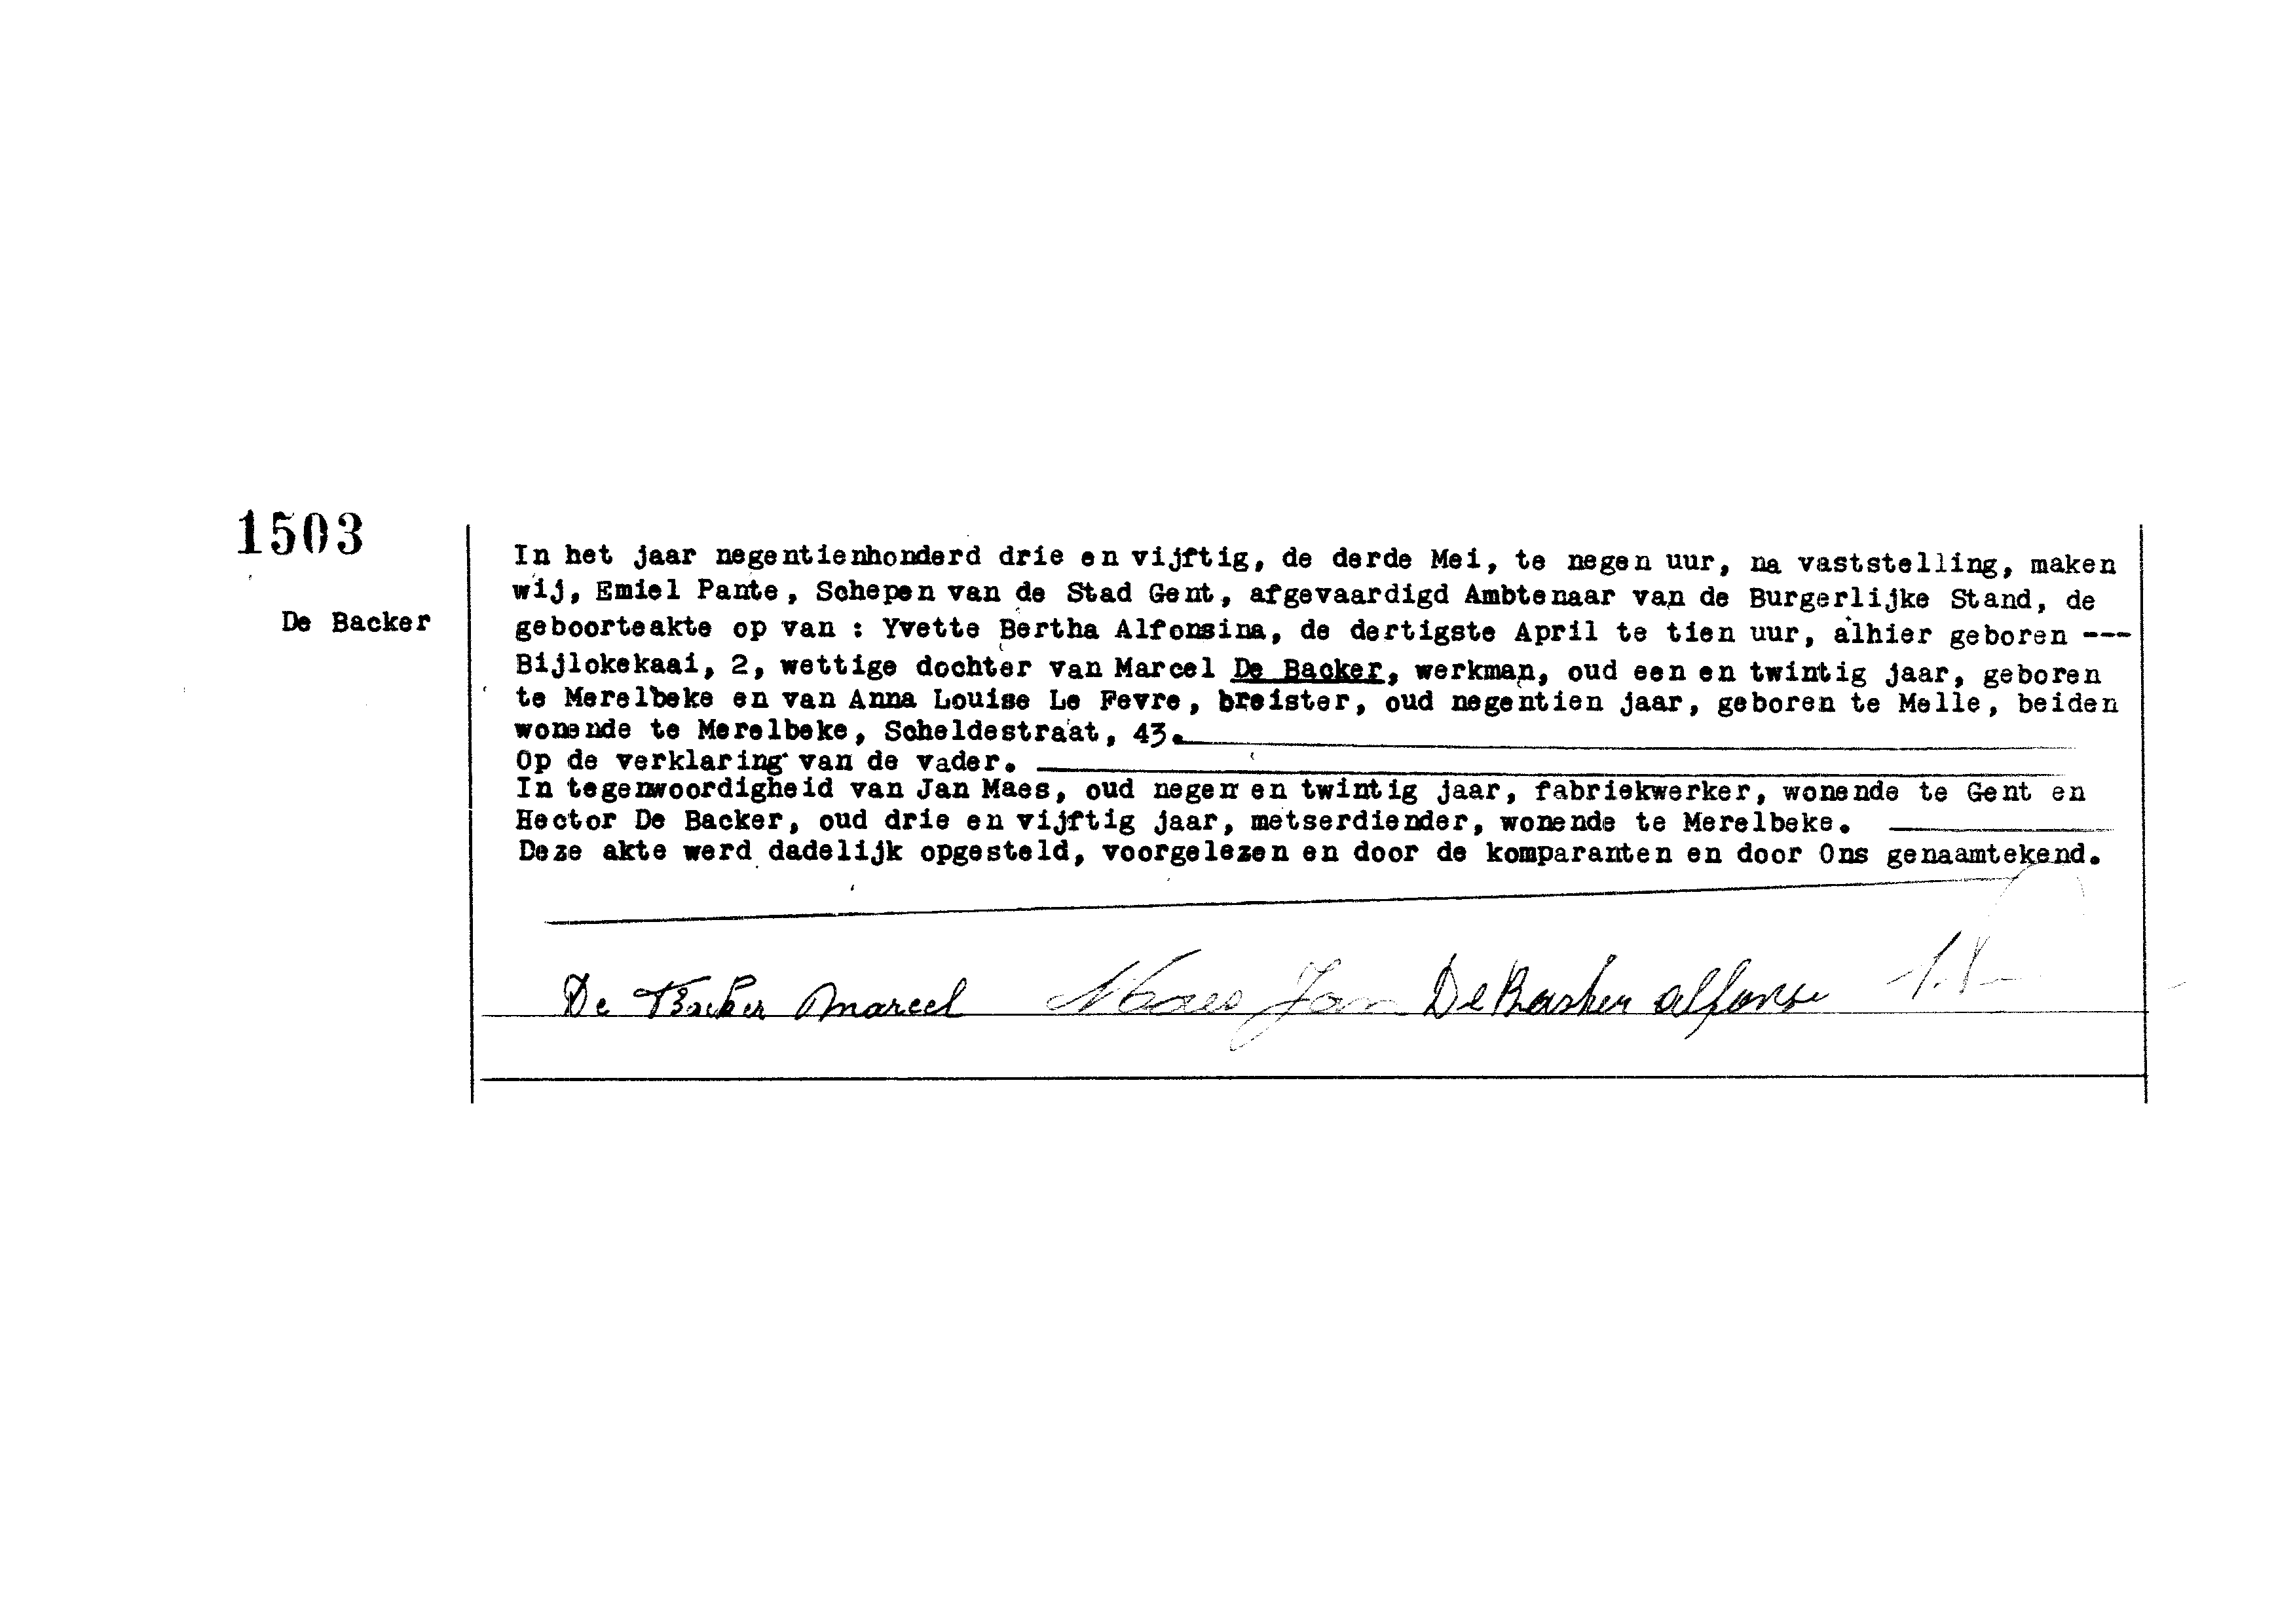 1503
De Backer
In het jaar negentienhonderd drie en vijftig, de derde Mei, te negen uur, na vaststelling, maken
wij, Emiel Pante, Schepen van de Stad Gent, afgevaardigd Ambtenaar van de Burgerlijke Stand, de
geboorteakte op van : Yvette Bertha Alfonsina, de dertigste April te tien uur, alhier geboren ---
Bijlokekaai, 2, wettige dochter van Marcel De Backer, werkman, oud een en twintig jaar, geboren
te Merelbeke en van Anna Louise Le Fevre, breister, oud negentien jaar, geboren te Melle, beiden
wonende te Merelbeke, Scheldestraat, 43.
Op de verklaring van de vader.
In tegenwoordigheid van Jan Maes, oud negen en twintig jaar, fabriekwerker, wonende te Gent en
Hector De Backer, oud drie en vijftig jaar, metserdiender, wonende te Merelbeke.
Deze akte werd dadelijk opgesteld, voorgelezen en door de komparanten en door Ons genaamtekend.
De Backer Marcel Maes Jan De Backer alfonse